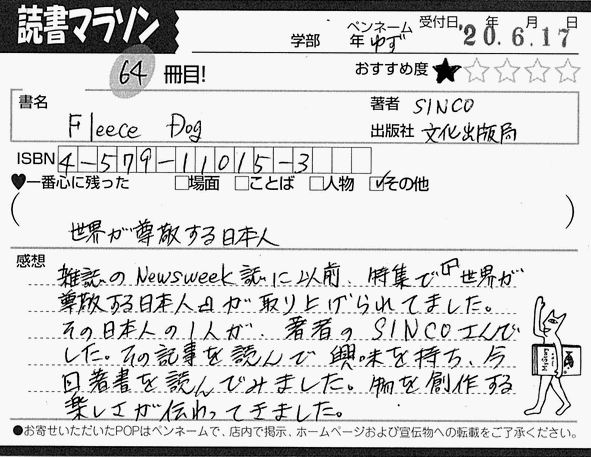 読書マラソン
学部 年 ペンネーム ゆず 受付日 '20年6月17日
64冊目!
おすすめ度★☆☆☆☆
書名 Fleece Dog
著者 SINCO
出版社 文化出版局
ISBN 4-579-11015-3
♥一番心に残った □場面 □ことば □人物 ☑その他
(世界が尊敬する日本人)
感想
雑誌のNewsweek誌に以前、特集で『世界が
尊敬する日本人』が取り上げられてました。
その日本人の1人が、著者のSINCOさんで
した。その記事を読んで興味を持ち、今
回著書を読んでみました。物を創作する
楽しさが伝わってきました。
●お寄せいただいたPOPはペンネームで、店内で掲示、ホームページおよび宣伝物への転載をご了承ください。